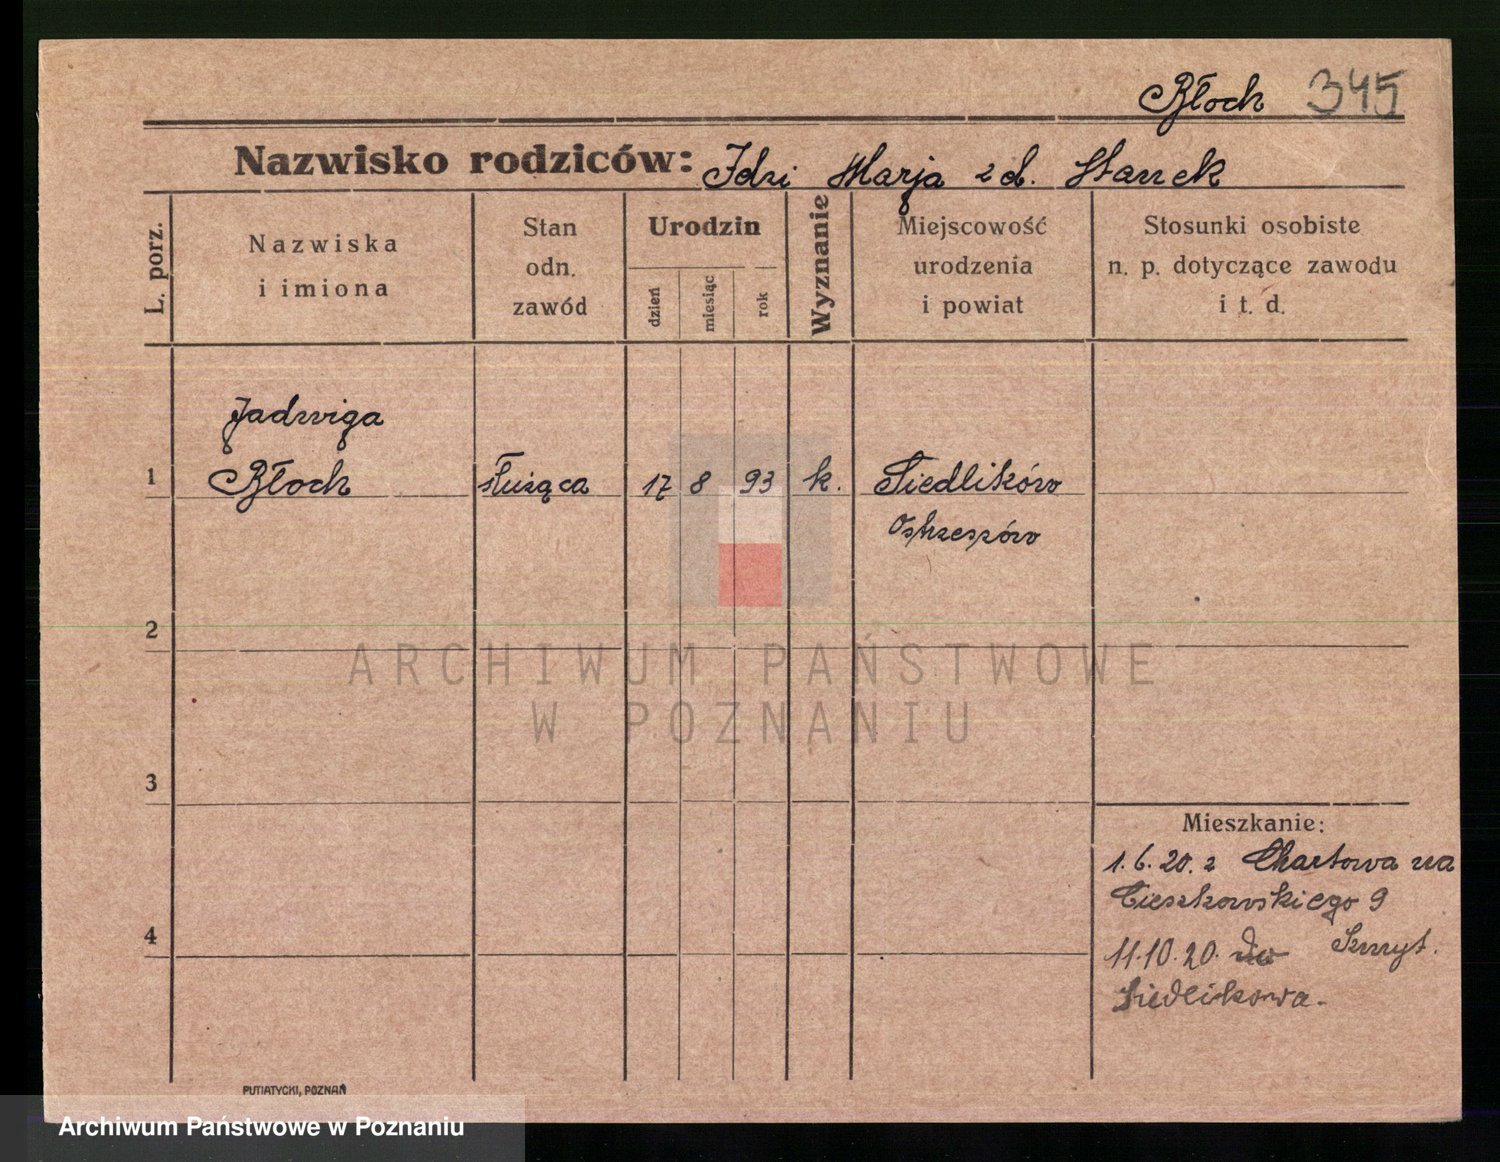 Błoch 345
Nazwisko rodziców: Idzi Marja z d. Stanek
L. porz.
Nazwiska
i imiona
Stan
odn.
zawód
Urodzin
dzień
miesiąc
rok
Wyznanie
Miejscowość
urodzenia
i powiat
Stosunki osobiste
n. p. dotyczące zawodu
i t. d.
Jadwiga
1 Błoch służąca 17 8 93 k. Siedlików
Ostrzeszów
2
3
4
Mieszkanie:
1.6.20. z Chartowa na
Cieszkowskiego 9
11.10.20. do
Siedlikowa.
PUTIATYCKI, POZNAŃ
ARCHIWUM PAŃSTWOWE
W POZNANIU
Archiwum Państwowe w Poznaniu